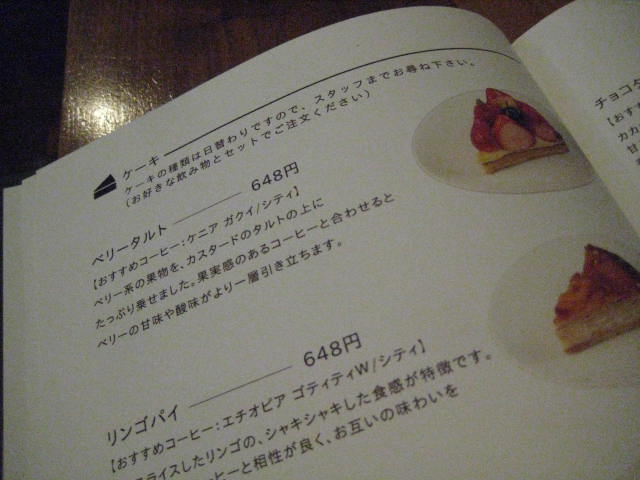 ケーキ
ケーキの種類は日替わりですので、スタッフまでお尋ね下さい。
(お好きな飲み物とセットでご注文ください)
ベリータルト 648円
【おすすめコーヒー:ケニア ガクイ/シティ】
ベリー系の果物を、カスタードのタルトの上に
たっぷり乗せました。果実感のあるコーヒーと合わせると
ベリーの甘味や酸味がより一層引き立ちます。
リンゴパイ 648円
【おすすめコーヒー:エチオピア ゴティティW/シティ】
ライスしたリンゴの、シャキシャキした食感が特徴です。
ーヒーと相性が良く、お互いの味わいを
チョコ
【おす
カカ
甘